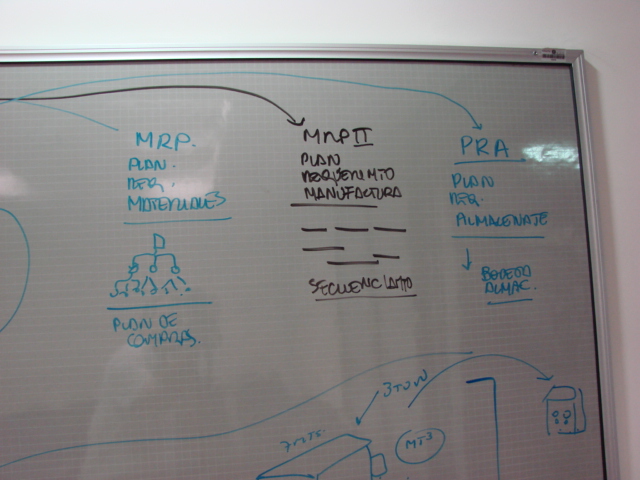 MRP.
PLAN.
REQ.
MATERIALES
PLAN DE
COMPRAS.
MRP II
PLAN
REQUERIMTO
MANUFACTURA
SECUENCIAMTO
PRA
PLAN
REQ.
ALMACENATE
BODEGA
ALMAC.
3 TON
7 mts.
MT3